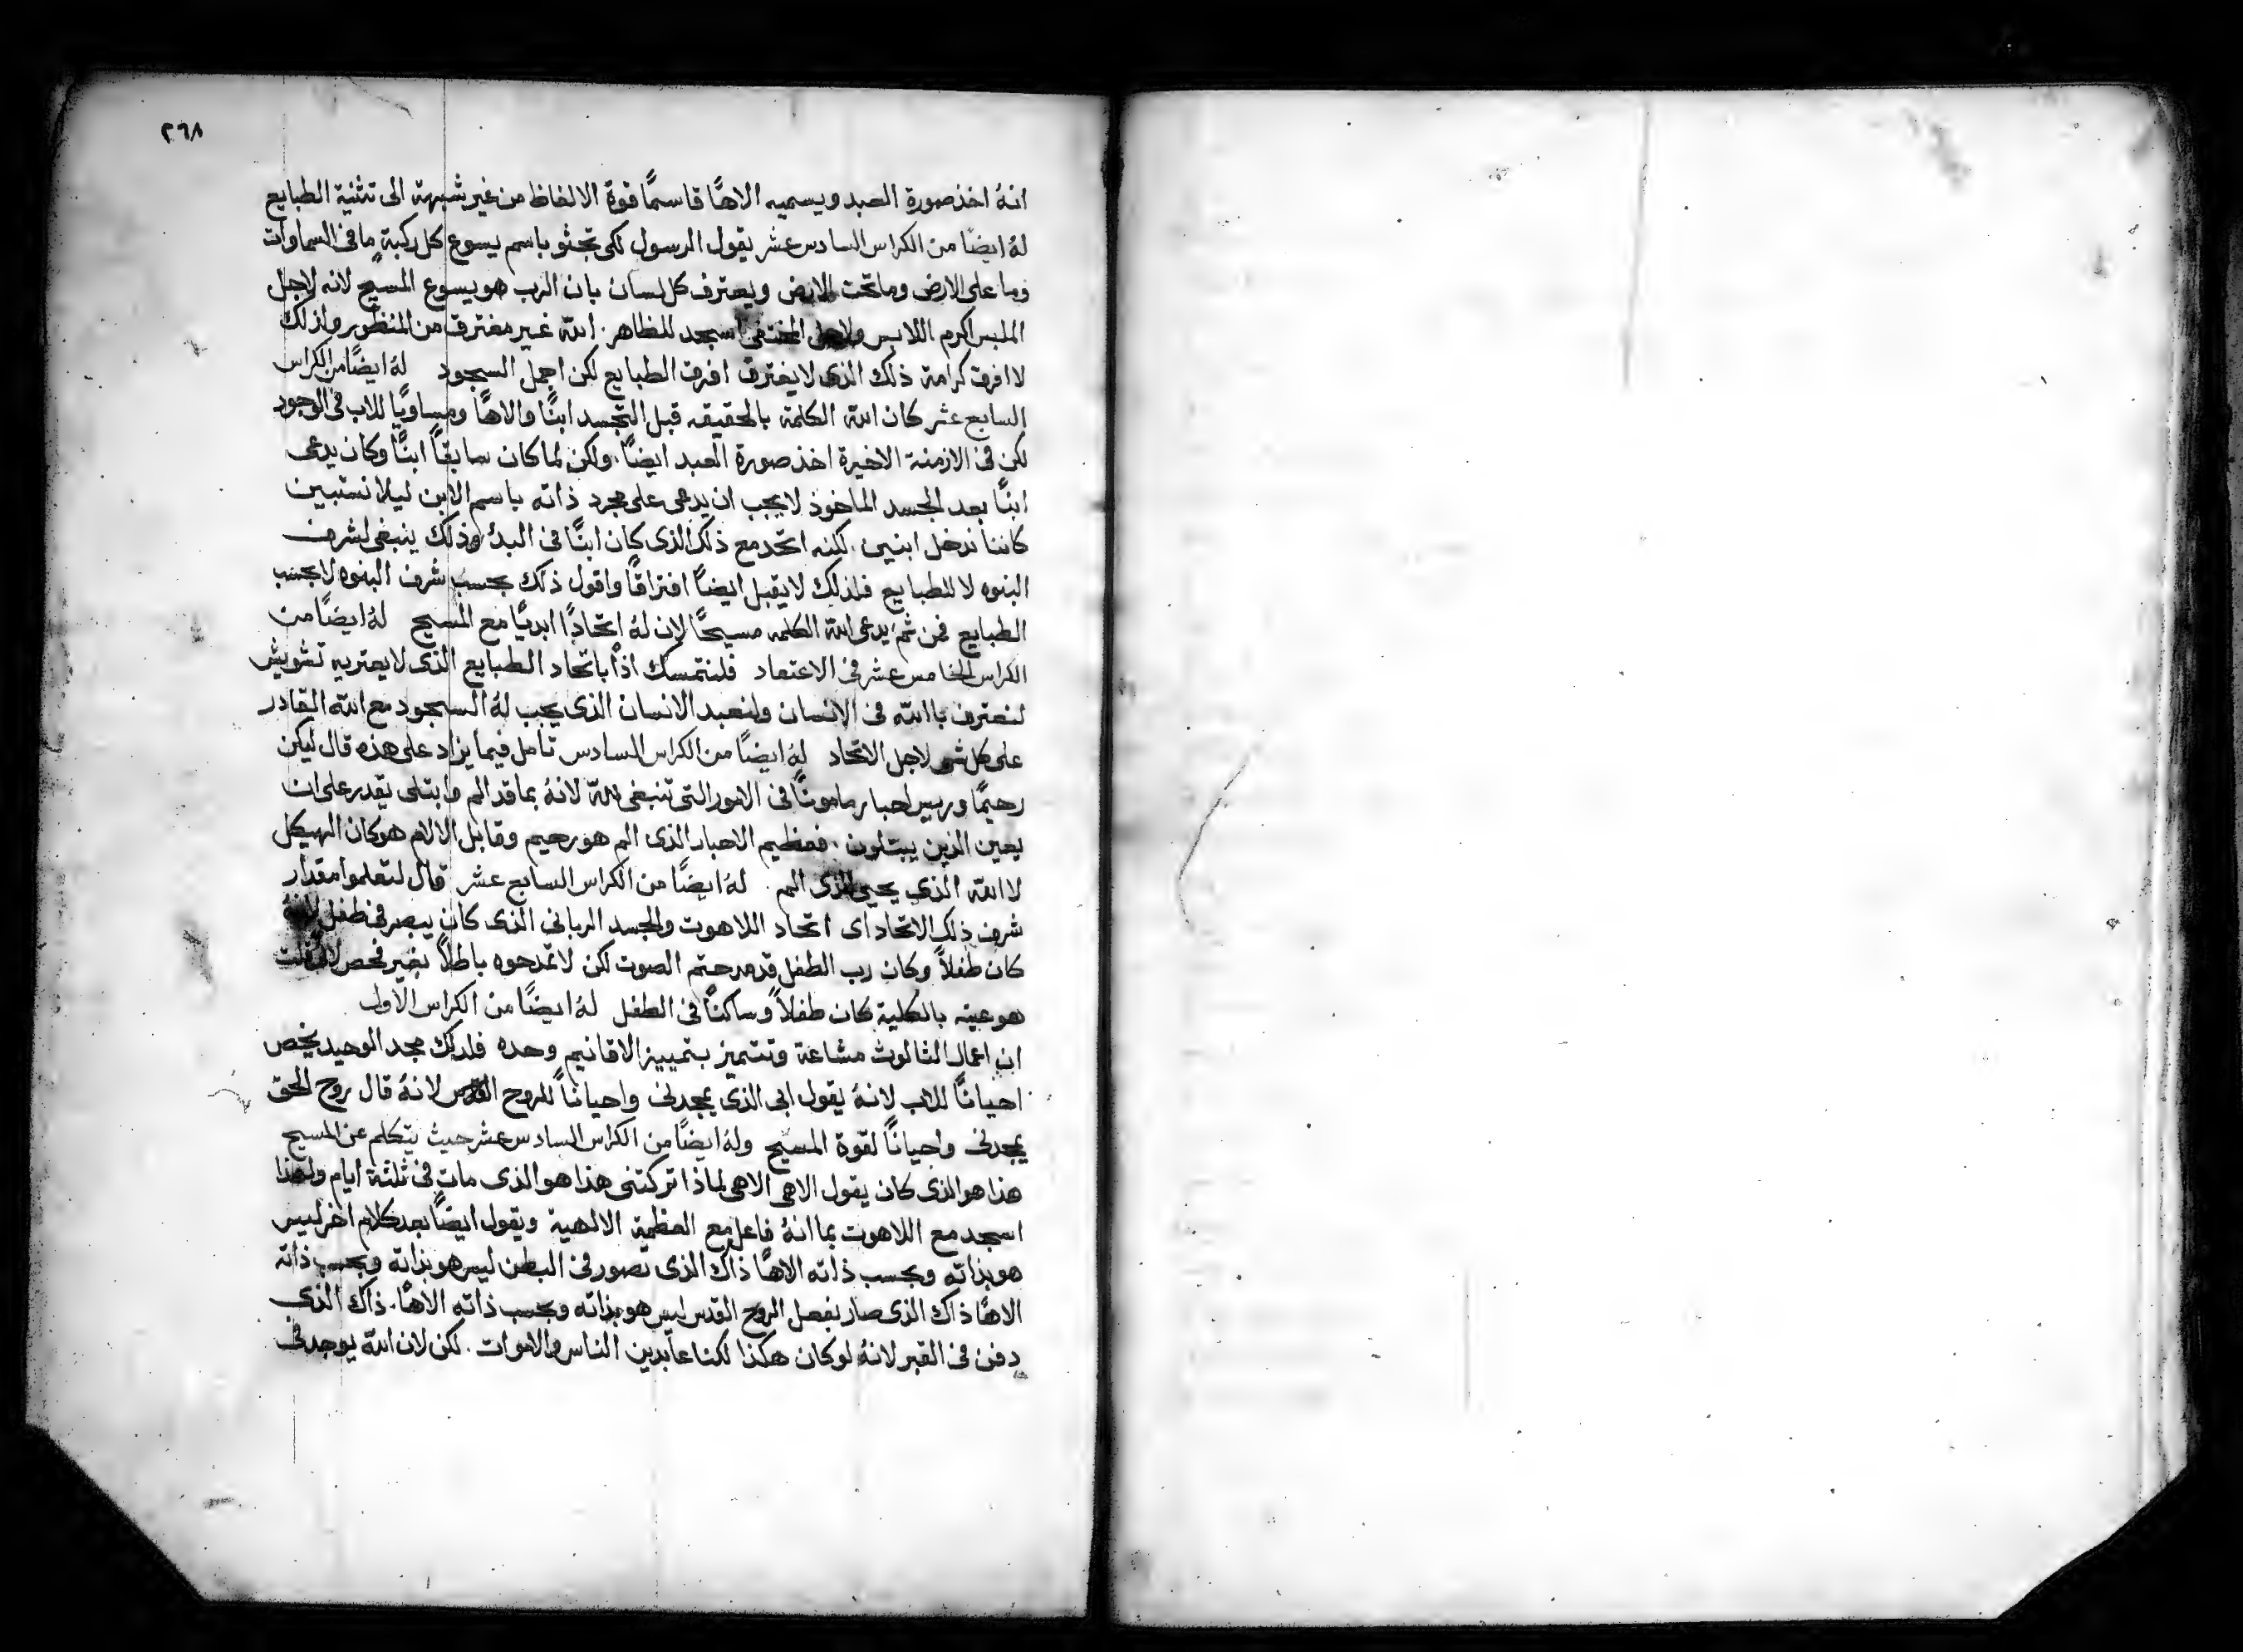 ٢٦٨
انهُ اخذ صورة العبد ويسميه الاهًا قاسمًا قوة الالفاظ من غير شبهة الى تثنية الطبايع
لهُ ايضًا من الكراس السادس عشر يقول الرسول لكى تجثو باسم يسوع كل ركبة ما فى السماوات
وما على الارض وما تحت الارض ويعترف كل لسان بان الرب هو يسوع المسيح لانه لاجل
الملبس اكرم اللابس ولاجل المختفى اسجد للظاهر. الله غير مفترق من المنظور ولذلك
لا افرق كرامة ذلك الذى لا يفترق افرق الطبايع لكن اجمل السجود لهُ ايضًا من الكراس
السابع عشر كان الله الكلمة بالحقيقه قبل التجسد ابنًا والاهًا ومساويًا للاب فى الوجود
لكن فى الازمنة الاخيرة اخذ صورة العبد ايضًا. ولكن لما كان سابقًا ابنًا وكان يدعى
ابنًا بعد الجسد الماخوذ لا يجب ان يدعى على مجرد ذاته باسم الابن ليلا نستبين
كاننا ندخل ابنين. لكنه اتحد مع ذلك الذى كان ابنًا فى البدء وذلك ينبغى لشرف
البنوه لا للطبايع فلذلك لا يقبل ايضًا افتراقًا واقول ذلك بحسب شرف البنوه لا بحسب
الطبايع فمن ثم يدعى الله الكلمه مسيحًا لان لهُ اتحادًا ابديًا مع المسيح لهُ ايضًا من
الكراس الخامس عشر فى الاعتماد فلنتمسك اذًا باتحاد الطبايع الذى لا يعتريه تشويش
لنعترف باالله فى الانسان ولنعبد الانسان الذى يجب لهُ السجود مع الله القادر
على كل شى لاجل الاتحاد لهُ ايضًا من الكراس السادس تامل فيما يزاد على هذه قال ليكن
رحيمًا وربيس احبار مامونًا فى الامور التى تنبغى لله لانهُ بما قد الم وابتلى يقدر على ان
يعين الذين يبتلون. فعظيم الاحبار الذى الم هو رحيم وقابل الالام هو كان الهيكل
لا الله الذى يحيى الذى الم. لهُ ايضًا من الكراس السابع عشر قال لتعلموا مقدار
شرف ذلك الاتحاد اى اتحاد اللاهوت والجسد الربانى الذى كان يبصر فى طفل لانهُ
كان طفلاً وكان رب الطفل قد مدحتم الصوت لكن لا تمدحوه باطلاً بغير فحص لانى قلت
هو عينه بالكلية كان طفلاً وساكنًا فى الطفل لهُ ايضًا من الكراس الاول
ان اعمال الثالوث مشاعة وتتميز بتمييز الاقانيم وحده فلذلك مجد الوحيد يخص
احيانًا للاب لانهُ يقول ابى الذى يمجدنى واحيانًا للروح القدس لانهُ قال روح الحق
يمجدنى واحيانًا لقوة المسيح ولهُ ايضًا من الكراس السادس عشر حيث يتكلم عن المسيح
هذا هو الذى كان يقول الاهى الاهى لماذا تركتنى هذا هو الذى مات فى ثلثة ايام ولهذا
اسجد مع اللاهوت بما انهُ فاعل مع العظمة الالهية ويقول ايضًا بعد كلام اخر ليس
هو بذاته وبحسب ذاته الاهًا ذاك الذى تصور فى البطن ليس هو بذاته وبحسب ذاته
الاهًا ذاك الذى صار بفعل الروح القدس ليس هو بذاته وبحسب ذاته الاهًا. ذاك الذى
دفن فى القبر لانهُ لو كان هكذا لكنا عابدين الناس والاموات. لكن لان الله يوجد فى